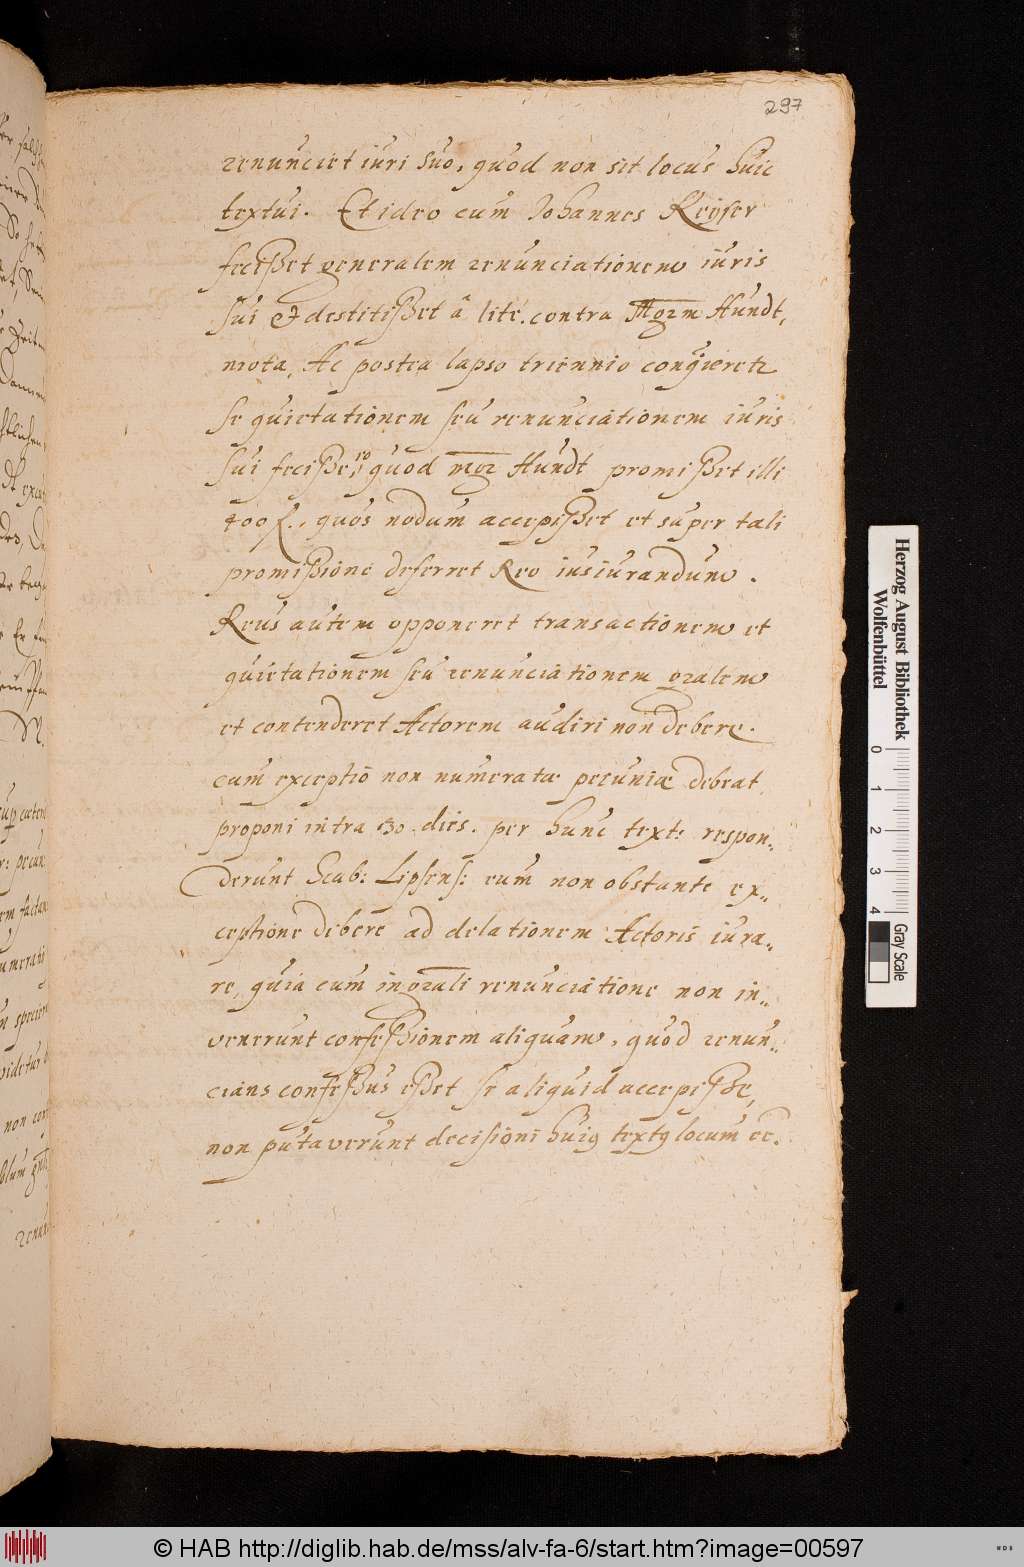 297
renunciet iuri suo, quod non sit locus huic
textui. Et ideo cum Johannes Keyser
fecißet generalem renunciationem iuris
sui & destitißet â lite. contra Mgrm Hundt,
mota, Ac postea lapso triennio
se quietationem seu renunciationem iuris
sui feciße, quod mgr Hundt promißet illi
400 f., quos nodum accepißet et super tali
promißione deferret Reo iusiurandum.
Reus autem opponeret transactionem et
quietationem seu renunciationem gralem
et contenderet Actorem audiri non debere.
cum exceptio non numeratæ pecuniæ debeat
proponi intra 30. dies. per hunc text: respon„
derunt Scab: Lipsens: eum non obstante ex„
ceptione debere ad delationem Actoris iura„
re, quia cum in grali renunciatione non in„
venerunt confeßionem aliquam, quod renun„
cians confeßus eßet se aliquid accepiße,
non putaverunt decisioni huig textg locum ec.
Herzog August Bibliothek
Wolfenbüttel
0 1 2 3 4
Gray Scale
© HAB http://diglib.hab.de/mss/alv-fa-6/start.htm?image=00597